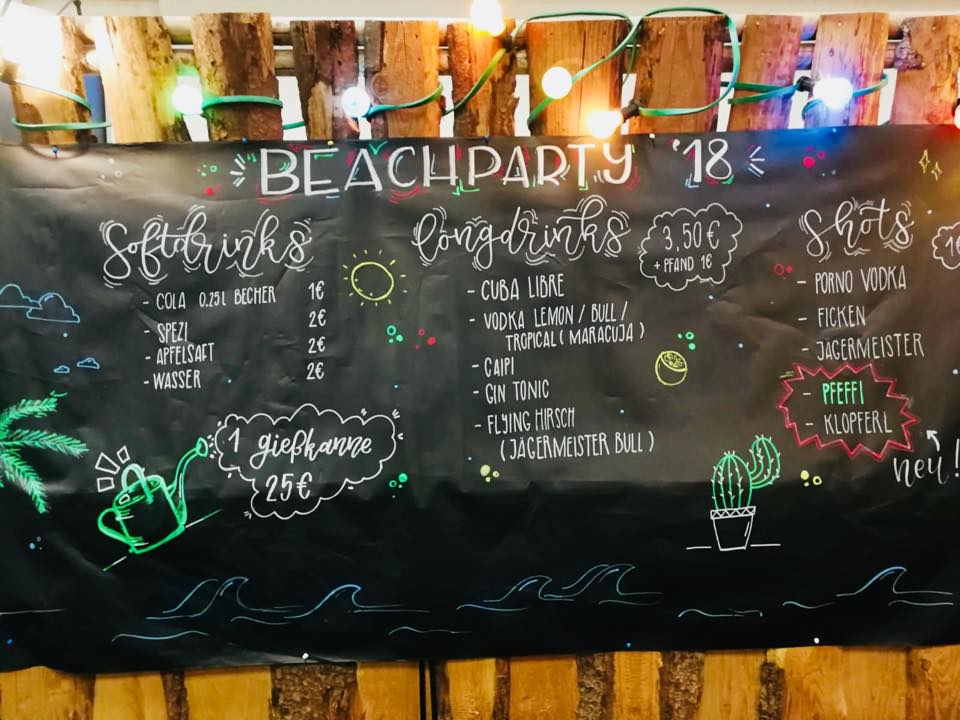 BEACHPARTY '18
Softdrinks
- COLA 0.25L BECHER 1€
- SPEZI 2€
- APFELSAFT 2€
- WASSER 2€
1 gießkanne
25€
longdrinks
3,50€
+ PFAND 1€
- CUBA LIBRE
- VODKA LEMON / BULL /
TROPICAL ( MARACUJA )
- CAIPI
- GIN TONIC
- FLYING HIRSCH
( JÄGERMEISTER BULL )
Shots
1€
- PORNO VODKA
- FICKEN
- JÄGERMEISTER
- PFEFFI
- KLOPFERL
neu!